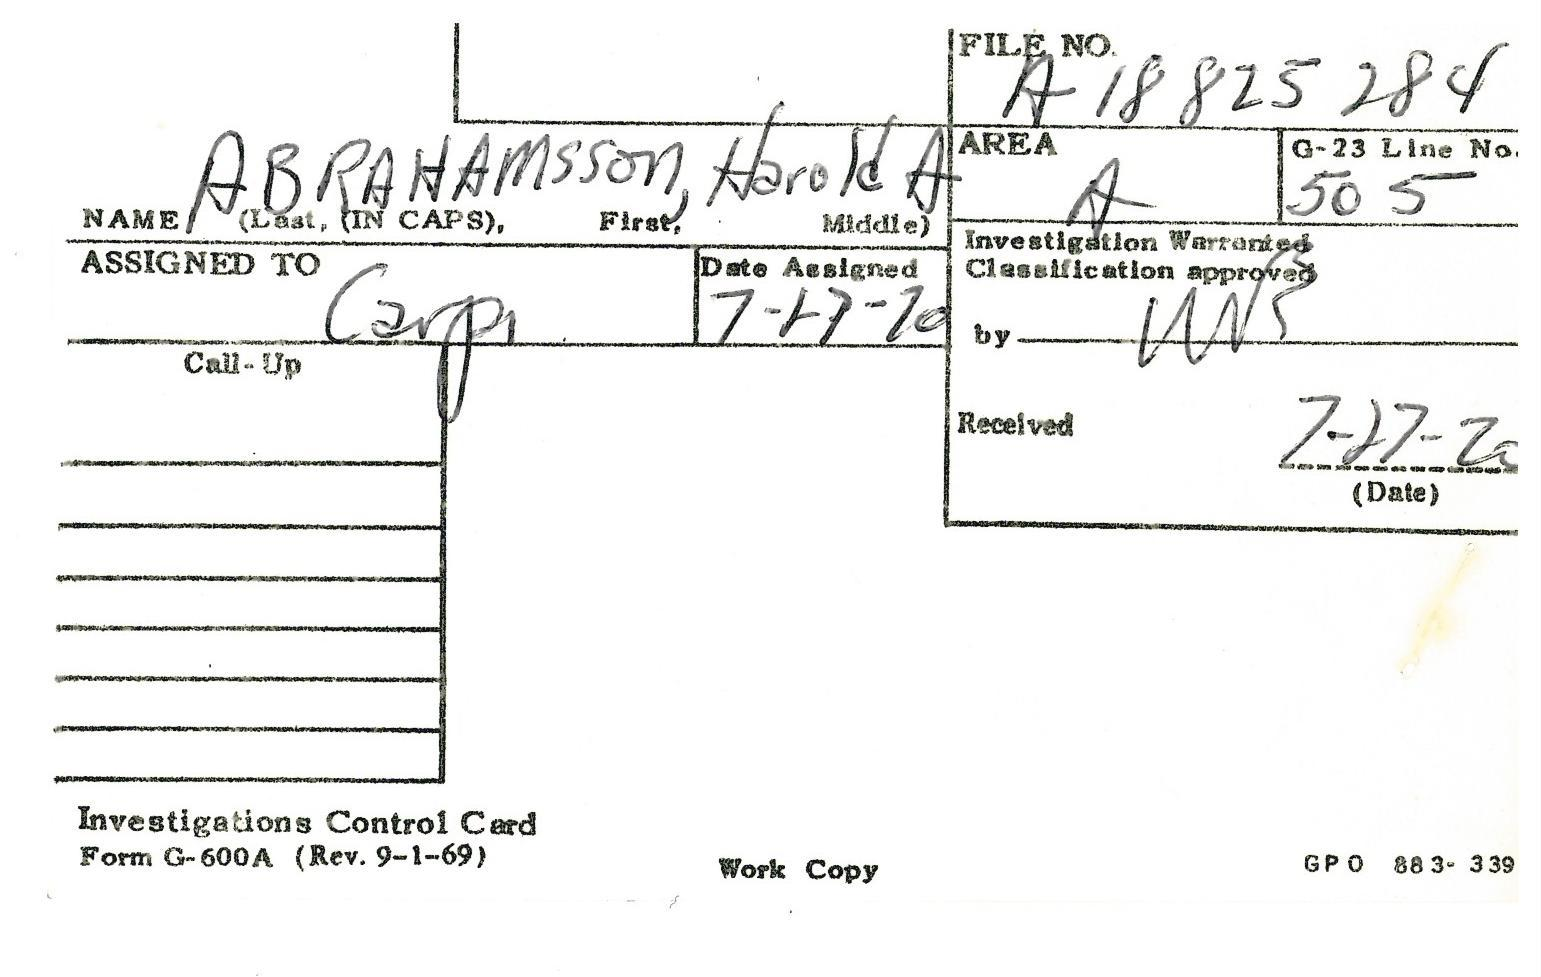 FILE NO.
A 18 825 284
ABRAHAMSSON, Harold A
NAME (Last, (IN CAPS), First, Middle)
AREA
A
G-23 Line No.
50 5
ASSIGNED TO
Carpi
Date Assigned
7-27-70
Investigation Warranted
Classification approved
by
Call-Up
Received
7-27-70
(Date)
Investigations Control Card
Form G-600A (Rev. 9-1-69)
Work Copy
GPO 883-339